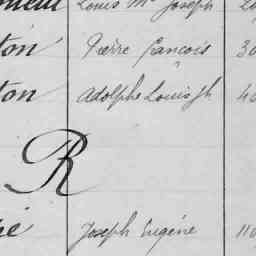 Louis Mie Joseph
ton Pierre François 30
ton Adolphe Louis Jh 40
R
Joseph Eugène 110